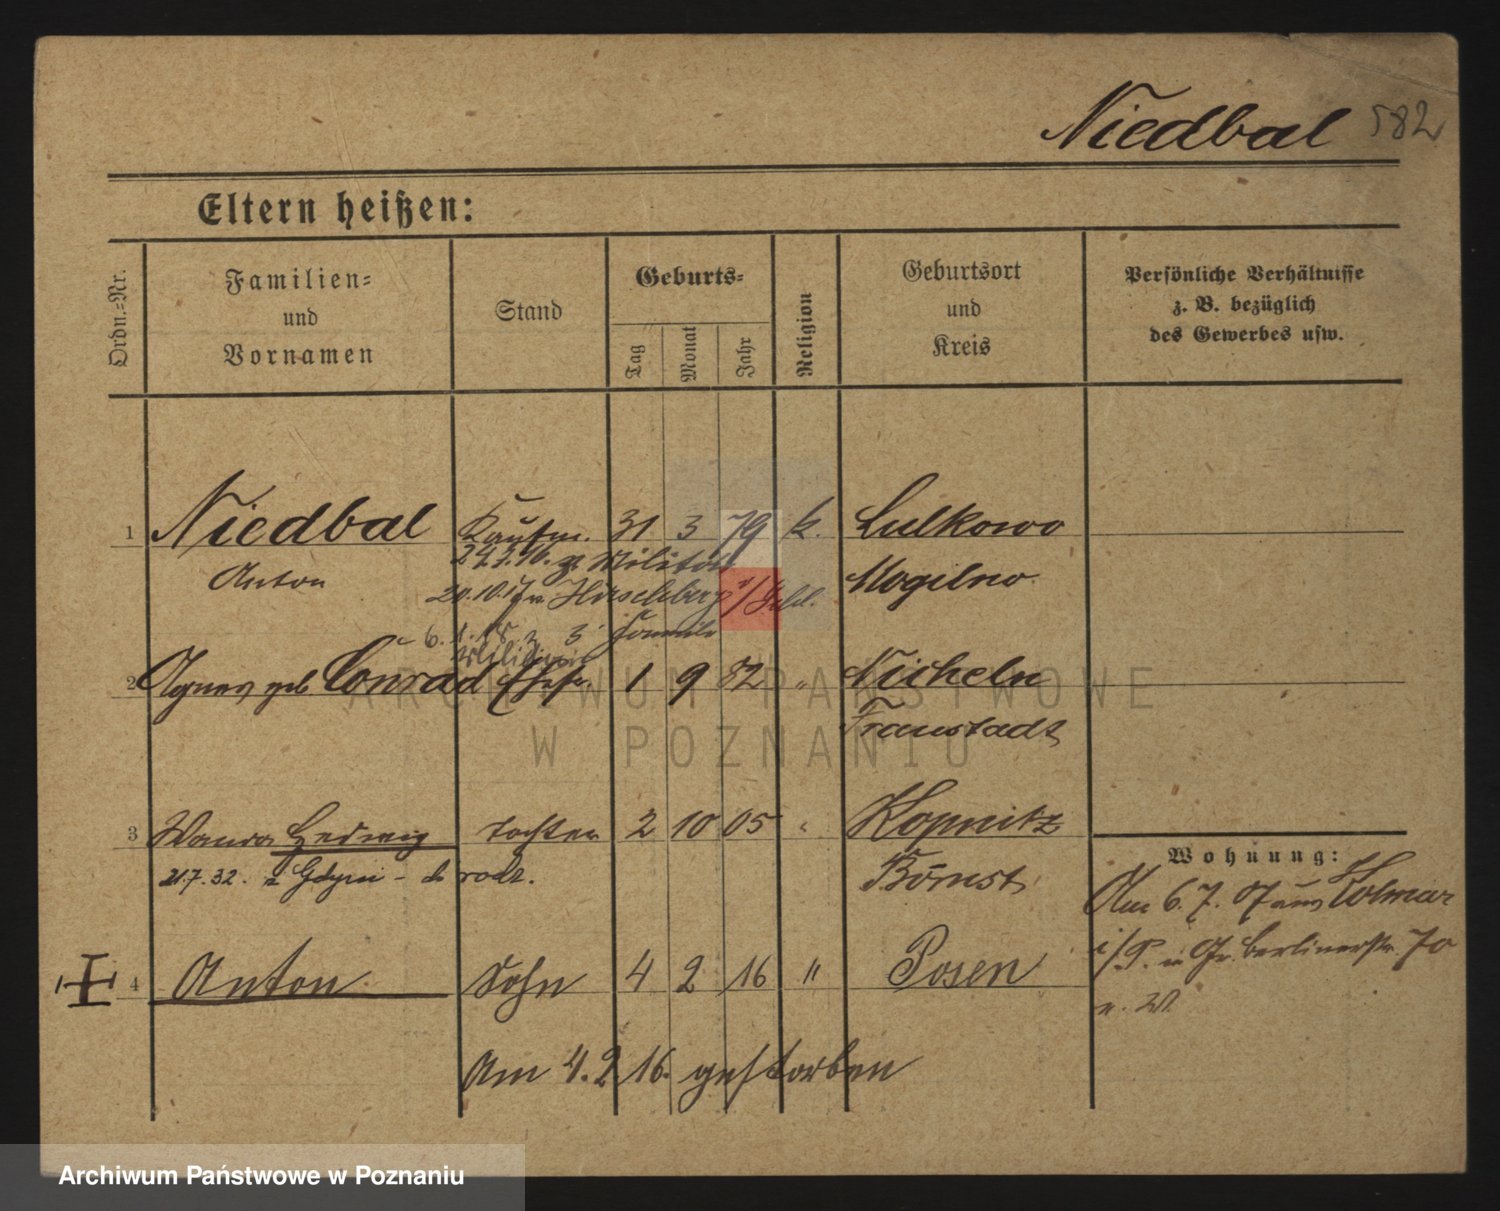 Niedbal 582
Eltern heißen:
Ordn.=Nr.
Familien=
und
Vornamen
Stand
Geburts=
Tag
Monat
Jahr
Religion
Geburtsort
und
Kreis
Persönliche Verhältnisse
z. B. bezüglich
des Gewerbes usw.
1 Niedbal Kaufm. 31 3 79 k. Lulkowo
24.3.16. z. Militär
Anton Mogilno
20.10.17 Hirschberg i/Schl.
6. 1. 18 z 3 Familie
2 Agnes geb Conrad Ehefr. 1 9 82 " Nicheln
Fraustadt
3 Wanda Hedwig Tochter 2 10 05 " Kopnitz
21.7.32. z Gdyni - do rodz. Bomst
Wohnung:
Am 6. 7. 07 aus Kolmar
i/P. n Gr. Berlinerstr. 70
n. W.
4 Anton Sohn 4 2 16 " Posen
Am 4. 2. 16. gestorben
ARCHIWUM PAŃSTWOWE
W POZNANIU
Archiwum Państwowe w Poznaniu